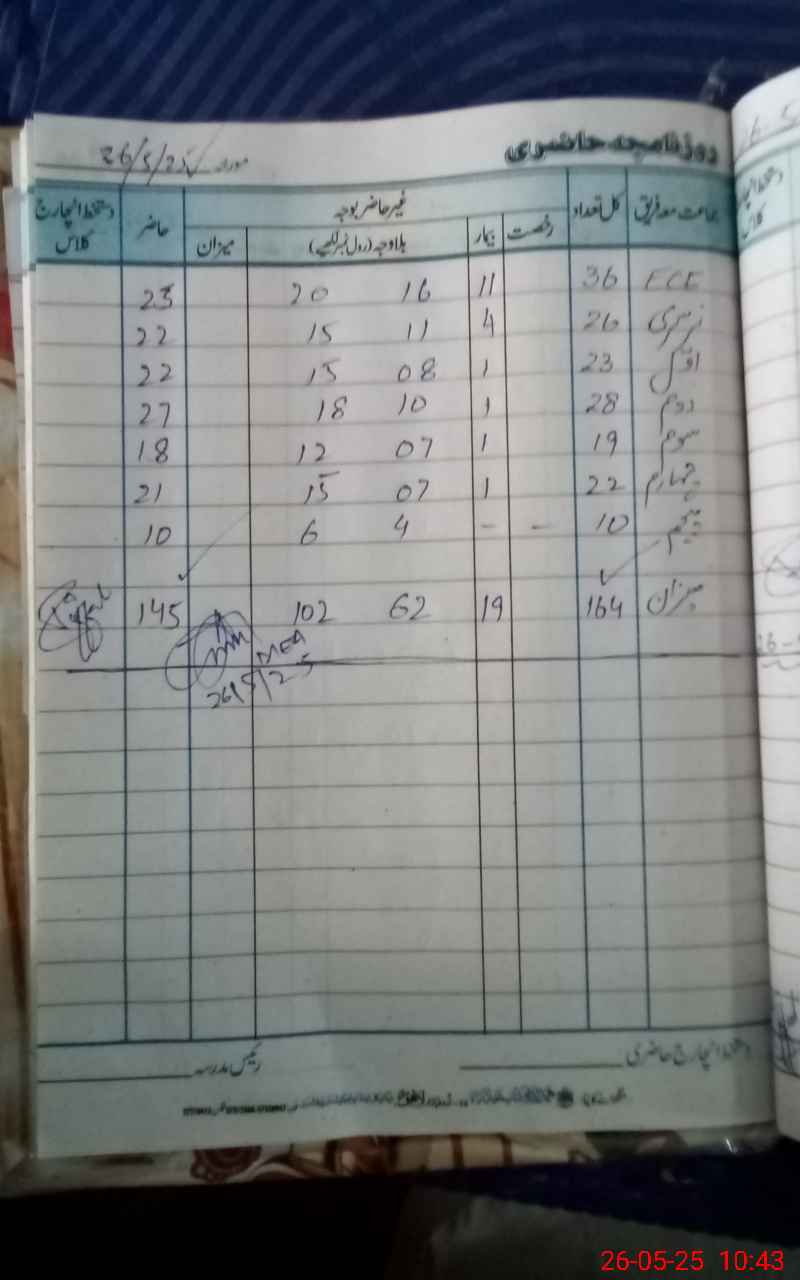 روزنامچہ حاضری مورخہ 26/5/25
جماعت معہ فریق کل تعداد غیر حاضر بوجہ حاضر دستخط انچارج کلاس
رخصت بیمار بلاوجہ (رول نمبر لکھیے) میزان
ECE 36 11 16 20 25
نرسری 26 4 11 15 22
اوّل 23 1 08 15 22
دوم 28 1 10 18 27
سوم 19 1 07 12 18
چہارم 22 1 07 15 21
پنجم 10 - - 4 6 10
میزان 164 19 62 102 145
MEA
26/5/25
دستخط انچارج حاضری رئیس مدرسہ
26-05-25 10:43